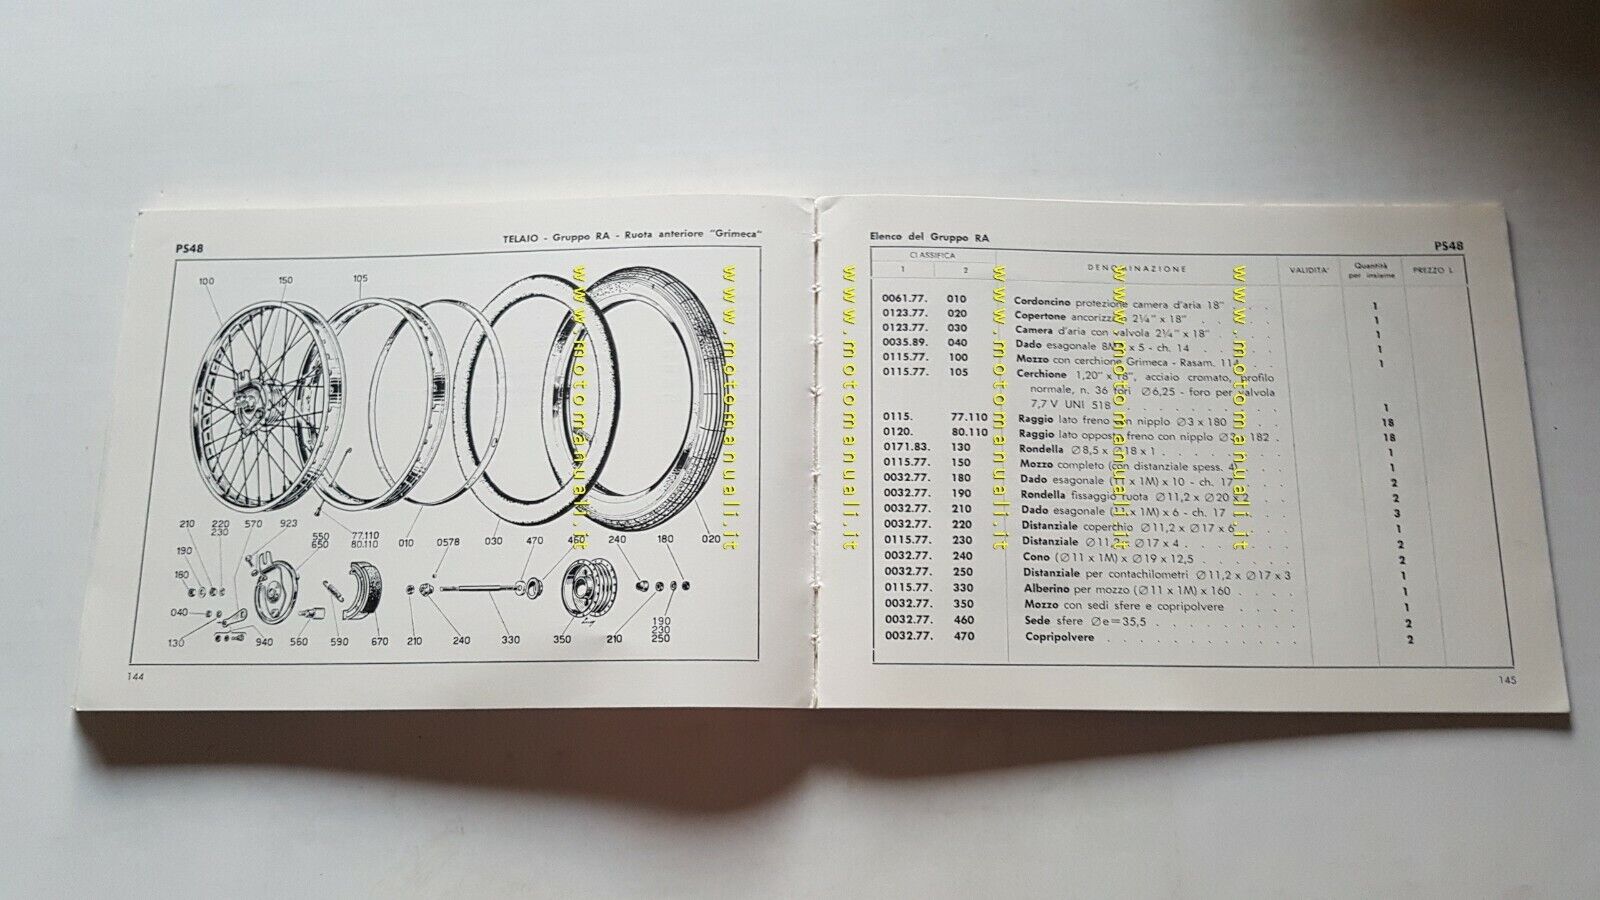 PS48
TELAIO - Gruppo RA - Ruota anteriore "Grimeca"
100 150 105
210 220 570 923 550 77.110 010 0578 030 470 460 240 180 020
230 650 80.110
190
160
040
130 940 560 590 670 210 240 330 350 210 190
230
250
144
Elenco del Gruppo RA
PS48
CLASSIFICA
1 2 DENOMINAZIONE VALIDITA' Quantità per insieme PREZZO L.
0061.77. 010 Cordoncino protezione camera d'aria 18" . . . 1
0123.77. 020 Copertone ancorizza 2¼" x 18" . . . 1
0123.77. 030 Camera d'aria con valvola 2¼" x 18" . . . 1
0035.89. 040 Dado esagonale 8M x 5 - ch. 14 . . . 1
0115.77. 100 Mozzo con cerchione Grimeca - Rasam. 1
0115.77. 105 Cerchione 1,20" x 18", acciaio cromato, profilo
normale, n. 36 fori Ø6,25 - foro per valvola
7,7 V UNI 518 . . . 1
0115. 77.110 Raggio lato freno con nipplo Ø3 x 180 . . . 18
0120. 80.110 Raggio lato opposto freno con nipplo Ø 182 . 18
0171.83. 130 Rondella Ø8,5 x 18 x 1 . . . 1
0115.77. 150 Mozzo completo (con distanziale spess. 4) . . 1
0032.77. 180 Dado esagonale (11 x 1M) x 10 - ch. 17 . . 2
0032.77. 190 Rondella fissaggio ruota Ø11,2 x Ø20 x 2 2
0032.77. 210 Dado esagonale (11 x 1M) x 6 - ch. 17 . . 3
0032.77. 220 Distanziale coperchio Ø11,2 x Ø17 x 6 . 1
0115.77. 230 Distanziale Ø11,2 x Ø17 x 4 . . . 2
0032.77. 240 Cono (Ø11 x 1M) x Ø19 x 12,5 . . . 2
0032.77. 250 Distanziale per contachilometri Ø11,2 x Ø17 x 3 1
0115.77. 330 Alberino per mozzo (Ø11 x 1M) x 160 . . . 1
0032.77. 350 Mozzo con sedi sfere e copripolvere . . . 1
0032.77. 460 Sede sfere Øe=35,5 . . . 2
0032.77. 470 Copripolvere . . . 2
145
www.motomanuali.it
www.motomanuali.it
www.motomanuali.it
www.motomanuali.it
www.motomanuali.it
www.motomanuali.it